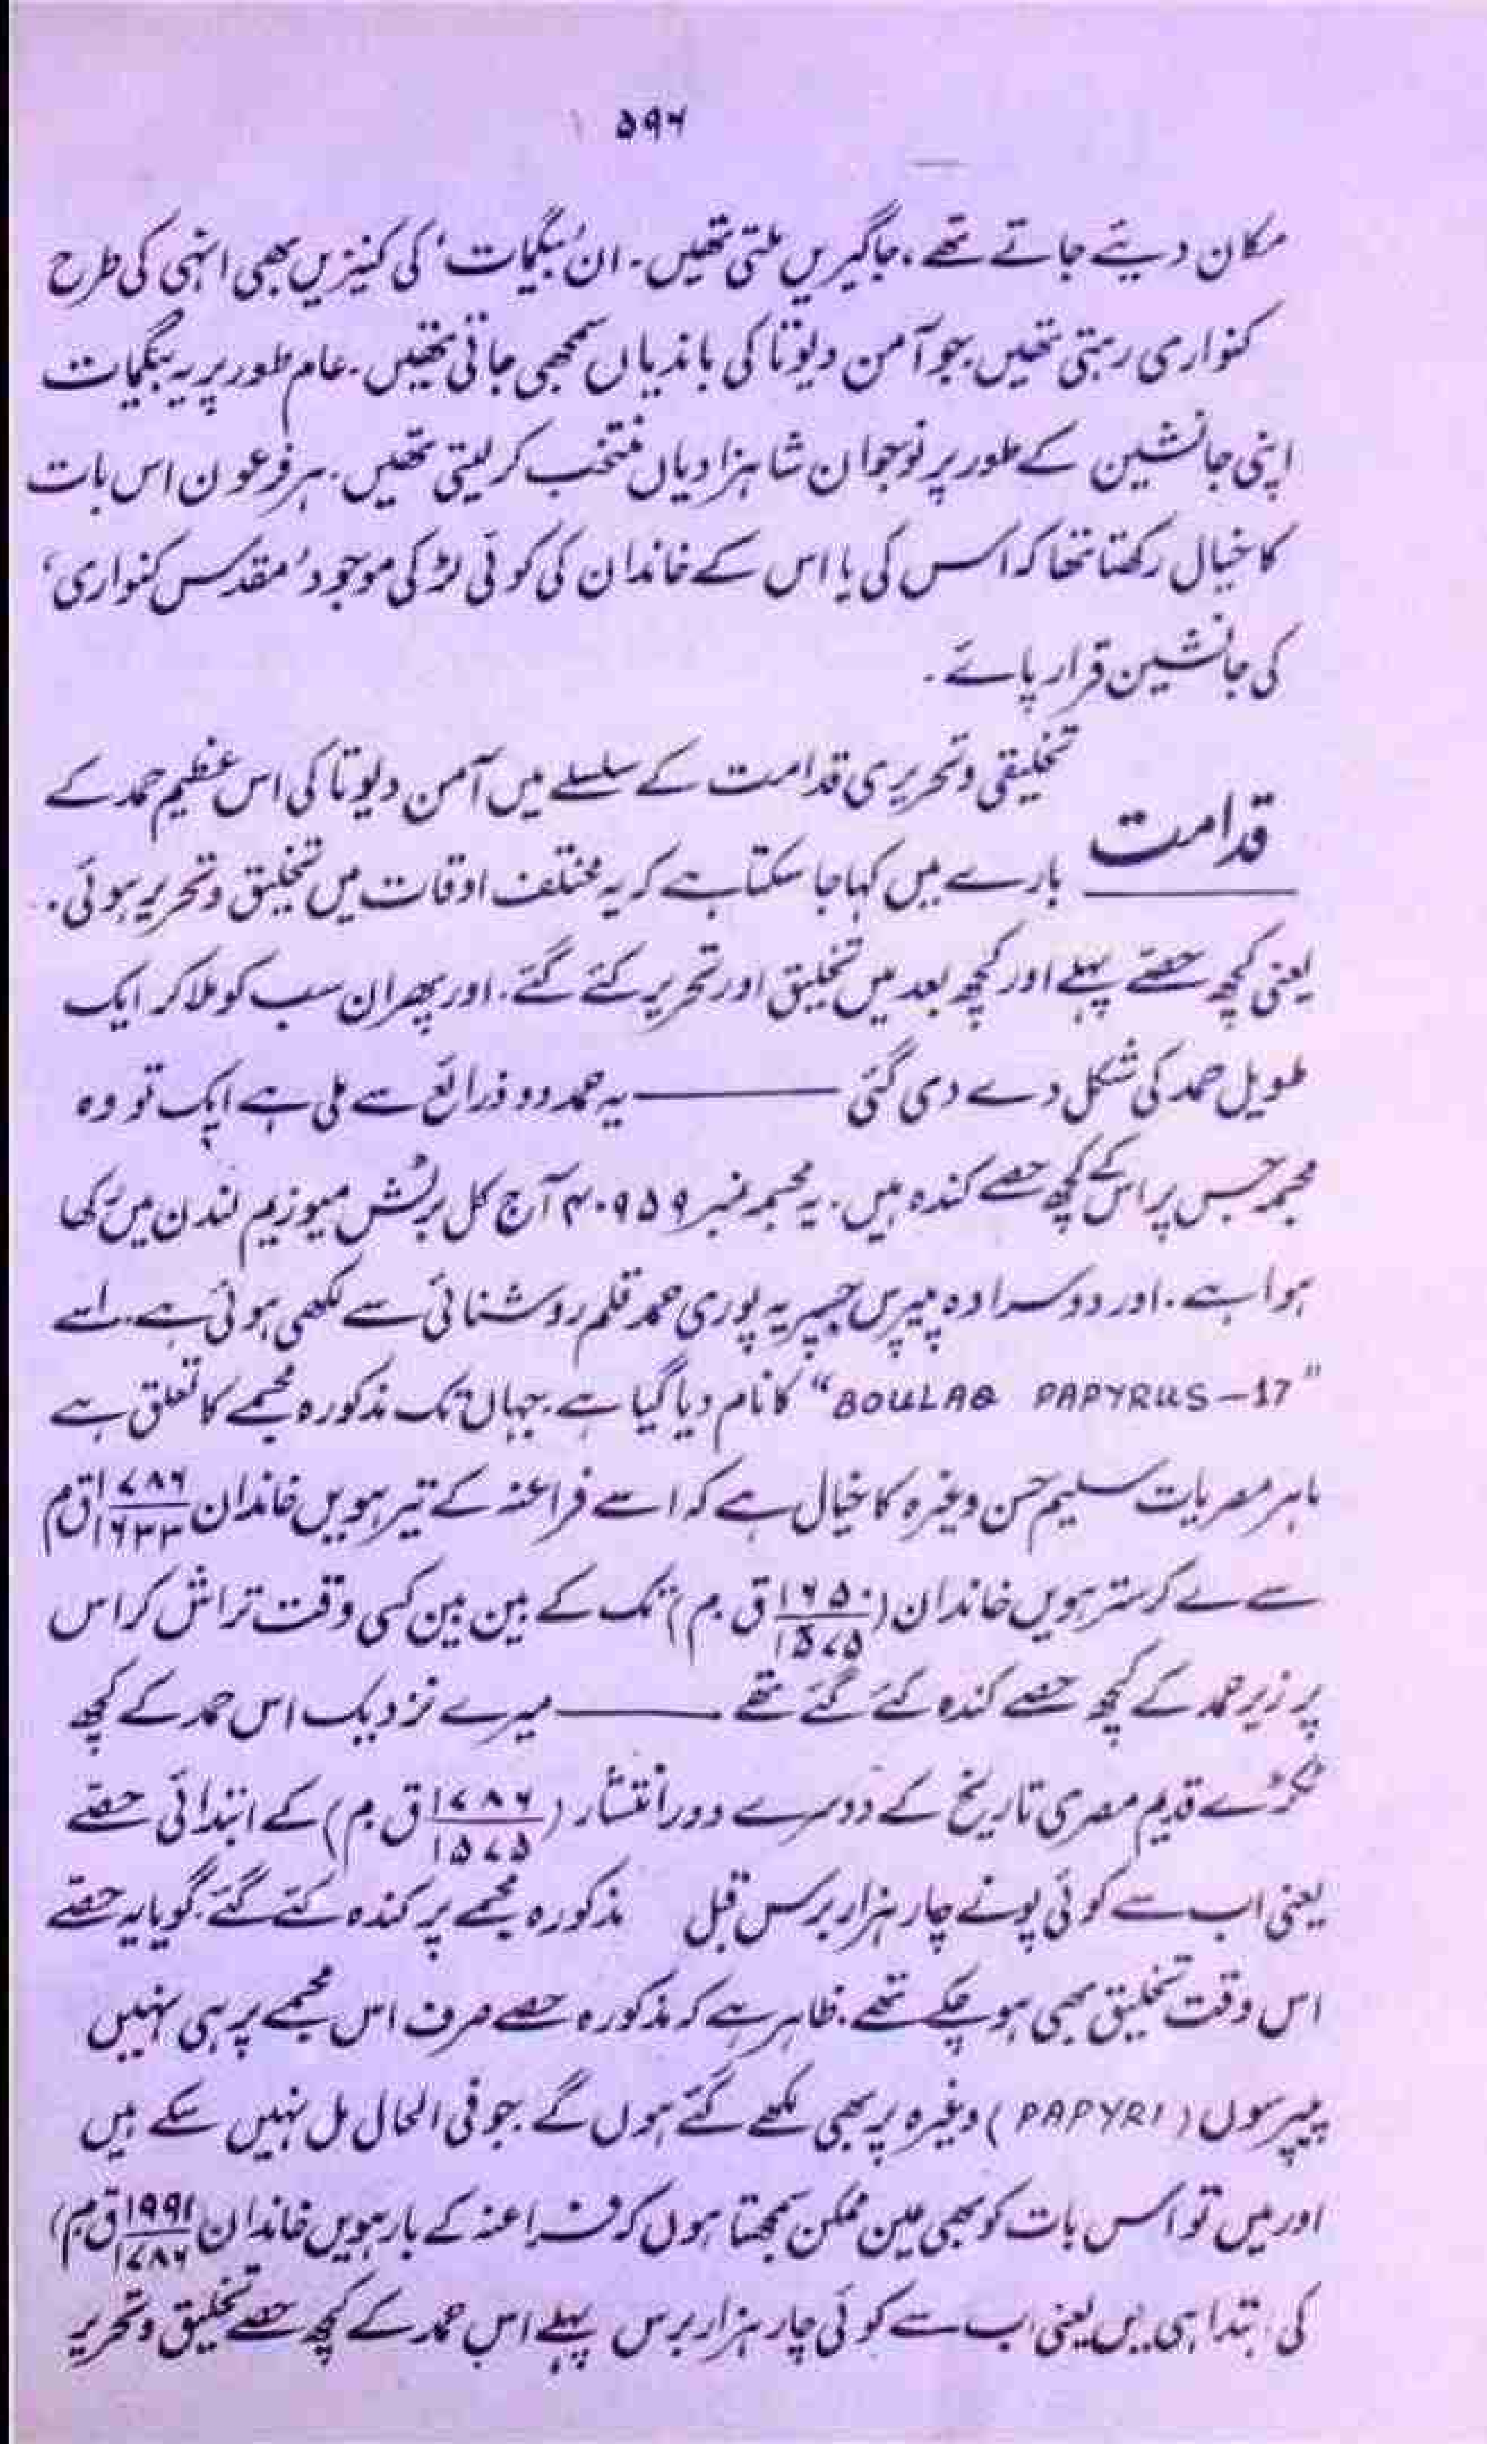 ۵۹۶
مکان دیئے جاتے تھے، جاگیریں ملتی تھیں۔ ان ’بیگمات‘ کی کنیزیں بھی انہی کی طرح
کنواری رہتی تھیں جو آمن دیوتا کی باندیاں سمجھی جاتی تھیں۔ عام طور پر یہ بیگمات
اپنی جانشین کے طور پر نوجوان شاہزادیاں منتخب کر لیتی تھیں۔ ہر فرعون اس بات
کا خیال رکھتا تھا کہ اس کی یا اس کے خاندان کی کوئی لڑکی موجود ’مقدس کنواری‘
کی جانشین قرار پائے۔
قدامت
تخلیقی و تحریری قدامت کے سلسلے میں آمن دیوتا کی اس عظیم حمد کے
بارے میں کہا جا سکتا ہے کہ یہ مختلف اوقات میں تخلیق و تحریر ہوئی۔
یعنی کچھ حصّے پہلے اور کچھ بعد میں تخلیق اور تحریر کئے گئے۔ اور پھر ان سب کو ملا کر ایک
طویل حمد کی شکل دے دی گئی ——— یہ حمد دو ذرائع سے ملی ہے ایک تو وہ
مجسمہ جس پر اس کے کچھ حصے کندہ ہیں۔ یہ مجسمہ نمبر ۴۰۹۵۹ آج کل برٹش میوزیم لندن میں رکھا
ہوا ہے۔ اور دوسرا وہ پیپرس جس پر یہ پوری حمد قلم روشنائی سے لکھی ہوئی ہے۔ اسے
"BOULAQ PAPYRUS—17" کا نام دیا گیا ہے۔ جہاں تک مذکورہ مجسمے کا تعلق ہے
ماہر مصریات سلیم حسن وغیرہ کا خیال ہے کہ اسے فراعنہ کے تیرہویں خاندان ۱۷۸۶/۱۶۳۳ ق م
سے لے کر سترہویں خاندان (۱۶۵۰/۱۵۷۵ ق۔م) تک کے بین بین کسی وقت تراش کر اس
پر زیر حمد کے کچھ حصے کندہ کئے گئے تھے ——— میرے نزدیک اس حمد کے کچھ
ٹکڑے قدیم مصری تاریخ کے دوسرے دور انتشار (۱۷۸۶/۱۵۷۵ ق۔م) کے ابتدائی حصّے
یعنی اب سے کوئی پونے چار ہزار برس قبل مذکورہ مجسمے پر کندہ کئے گئے۔ گویا یہ حصّے
اس وقت تخلیق بھی ہو چکے تھے۔ ظاہر ہے کہ مذکورہ حصے صرف اس مجسمے پر ہی نہیں
پیپرسوں (PAPYRI) وغیرہ پر بھی لکھے گئے ہوں گے۔ جو فی الحال مل نہیں سکے ہیں
اور میں تو اس بات کو بھی عین ممکن سمجھتا ہوں کہ فراعنہ کے بارہویں خاندان ۱۹۹۱/۱۷۸۶ ق م)
کی ابتدا ہی میں یعنی اب سے کوئی چار ہزار برس پہلے اس حمد کے کچھ حصے تخلیق و تحریر